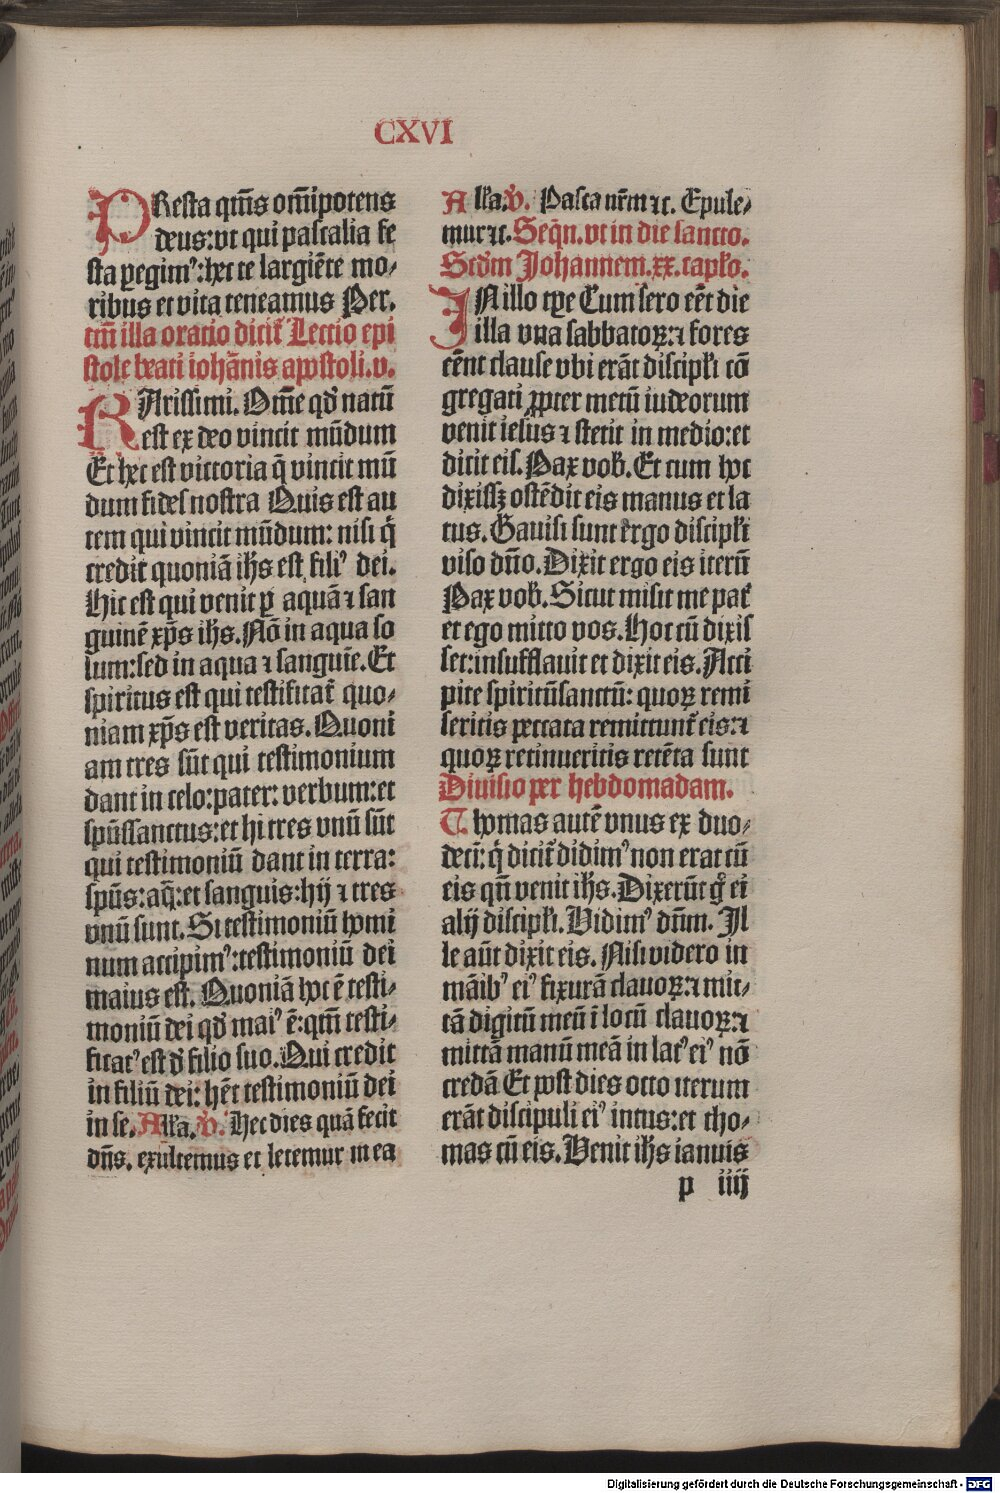 CXVI
PResta qm̄s om̄ipotens
deus: vt qui paschalia fe
sta ꝑegimꝰ: hec te largiēte mo⸗
ribus et vita teneamus Per.
cū illa oratio dicit᷑ Lectio epi
stole beati iohānis apostoli.v.
KArissimi. Om̄e qd̓ natū
est ex deo vincit mūdum
Et hec est victoria q̄ vincit mū
dum fides nostra Quis est au
tem qui vincit mūdum: nisi q̄
credit quoniā ihs̄ est filiꝰ dei.
Hic est qui venit ꝑ aquā ⁊ san
guinē xp̄s ihs̄. Nō in aqua so
lum: sed in aqua ⁊ sanguīe. Et
spiritus est qui testificat᷑ quo⸗
niam xp̄s est veritas. Quoni
am tres sūt qui testimonium
dant in celo: pater: verbum: et
spūssanctus: et hi tres vnū sūt
qui testimoniū dant in terra:
spūs: aq̄: et sanguis: hij ⁊ tres
vnū sunt. Si testimoniū homi
num accipimꝰ: testimoniū dei
maius est. Quoniā hoc ē testi⸗
moniū dei qd̓ maiꝰ ē: qm̄ testi⸗
ficatꝰ est d̓ filio suo. Qui credit
in filiū dei: hēt testimoniū dei
in se. Alla. v̓. Hec dies quā fecit
dn̄s. exultemus et letemur in ea
Alla. v̓. Pasca nr̄m ⁊c. Epule⸗
mur ⁊c. Seqn̄. vt in die sancto.
Scd̓m Johannem. xx. caplo.
IN illo tꝑe Cum sero eēt die
illa vna sabbatoꝝ: ⁊ fores
eēnt clause vbi erāt discipli cō
gregati ꝓpter metū iudeorum
venit iesus ⁊ stetit in medio: et
dicit eis. Pax vob. Et cum hoc
dixissꝫ ostēdit eis manus et la
tus. Gauisi sunt ergo discipli
viso dn̄o. Dixit ergo eis iterū
Pax vob. Sicut misit me pat᷑
et ego mitto vos. Hoc cū dixis
set: insufflauit et dixit eis. Acci
pite spiritūsanctū: quoꝝ remi
seritis peccata remittunt᷑ eis: ⁊
quoꝝ retinueritis retēta sunt
Diuisio per hebdomadam.
Thomas autē vnus ex duo⸗
deci: q̄ dicit᷑ didimꝰ non erat cū
eis qn̄ venit ihs̄. Dixerūt g̊ ei
alij discipli. Vidimꝰ dn̄m. Il
le aūt dixit eis. Nisi videro in
māibꝰ eiꝰ fixurā clauoꝝ: ⁊ mit⸗
tā digitū meū ī locū clauoꝝ: ⁊
mittā manū meā in latꝰ eiꝰ nō
credā Et post dies octo iterum
erāt discipuli eiꝰ intus: et tho⸗
mas cū eis. Venit ihs̄ ianuis
p iiij
Digitalisierung gefördert durch die Deutsche Forschungsgemeinschaft - DFG